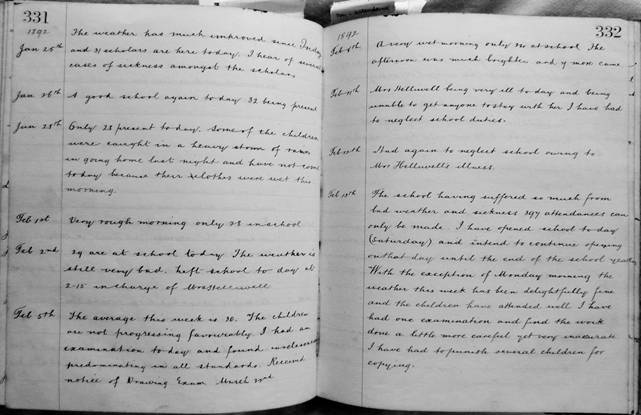 331
1892
Jan 25th The weather has much improved since Friday
and 31 scholars are here today. I hear of several
cases of sickness amongst the scholars
Jan 26th A good school again today 32 being present
Jan 28th Only 23 present today. Some of the children
were caught in a heavy storm of rain
in going home last night and have not come
today because their clothes were wet this
morning.
Feb 1st Very rough morning only 23 in school
Feb 2nd 29 are at school today The weather is
still very bad. Left school to day at
2-15 in charge of Mrs Helliwell
Feb 5th The average this week is 30. The children
are not progressing favourably. I had an
examination to day and found
predominating in all standards. Received
notice of Drawing Exam March 22nd
332
1892
A very wet morning only 20 at school The
afternoon was much brighter and 9 more came
Mrs Helliwell being very ill to day and being
unable to get anyone to stay with her I have had
to neglect school duties.
Had again to neglect school owing to
Mrs Helliwell's illness.
The school having suffered so much from
bad weather and sickness 397 attendances can
only be made. I have opened school to day
(Saturday) and intend to continue opening
on that day until the end of the school year.
With the exception of Monday morning the
weather this week has been delightfully fine
and the children have attended well I have
had one examination and find the work
done a little more careful yet very inaccurate
I have had to punish several children for
copying.